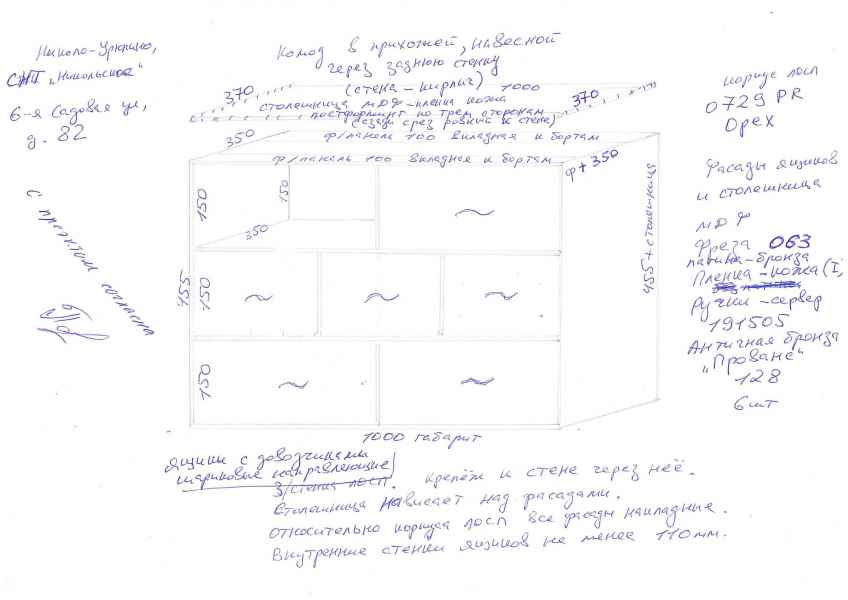 Николо-Урюпино,
СНТ "Никольское"
6-я Садовая ул,
д. 82
Комод в прихожей, навесной
через заднюю стенку
(стена-кирпич)
370
1000
370
столешница МДФ-пленка кожа
постформинг по трем сторонам
(сзади срез ровный к стене)
350
ф/панель 100 вкладная к бортам
ф/панель 100 вкладная к бортам
ф+350
корпус лдсп
0729 PR
Орех
Фасады ящиков
и столешница
МДФ
Фреза 063
патина-бронза
Пленка-кожа(I,
Ручки-сервер
191505
Античная бронза
"Прованс"
128
6шт
с проектом согласна
150
150
350
455
150
150
455+столешница
1000 габарит
ящики с доводчиками
шариковые направляющие
З/стенка лдсп. Крепёж к стене через неё.
Столешница нависает над фасадами.
относительно корпуса лдсп все фасады накладные.
Внутренние стенки ящиков не менее 110мм.